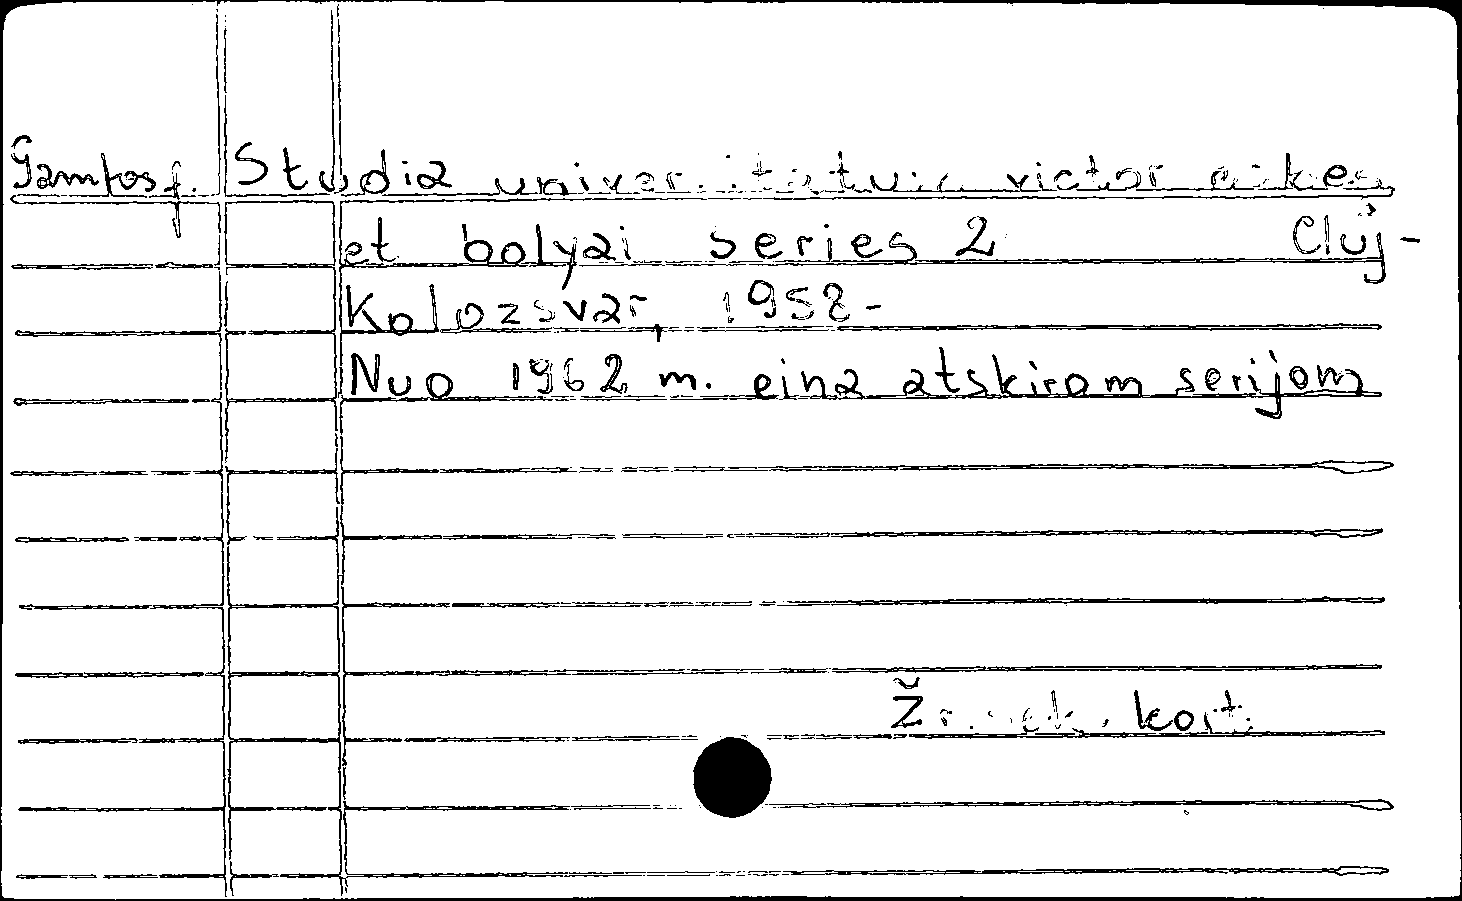 Gamtos f. Studia universitatum victor babes
et bolyai series 2 Cluj-
Kolozsvar, 1958-
Nuo 1962 m. eina atskirom serijom
Žr. sek. kort.